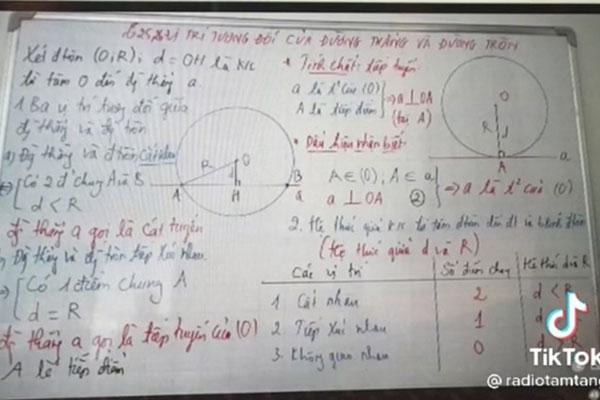 VỊ TRÍ TƯƠNG ĐỐI CỦA ĐƯỜNG THẲNG VÀ ĐƯỜNG TRÒN
Xét đtròn (O;R); d = OH là k/c
từ tâm O đến đg thẳng a.
1. Ba vị trí tương đối giữa
đg thẳng và đg tròn
a) Đg thẳng và đtròn cắt nhau
⇔ Có 2 đ' chung A và B
d < R
đg thẳng a gọi là cát tuyến
Đg thẳng và đg tròn tiếp xúc nhau
⇒ Có 1 điểm chung A
d = R
đg thẳng a gọi là tiếp tuyến của (O)
A là tiếp điểm
R
O
A
H
B
a
* Tính chất: tiếp tuyến
a là t² của (O)
A là tiếp điểm
⇒ a ⊥ OA
(tại A)
* Dấu hiệu nhận biết
A ∈ (O), A ∈ a
a ⊥ OA
②
⇒ a là t² của (O)
O
R
A
a
2. Hệ thức giữa k/c từ tâm đtròn đến đt và bkính đtròn
(Hệ thức giữa d và R)
Các vị trí
Số điểm chung
Hệ thức d và R
1 Cắt nhau
2
d < R
2 Tiếp xúc nhau
1
d
3. Không giao nhau
0
R
TikTok
@radiotamtang